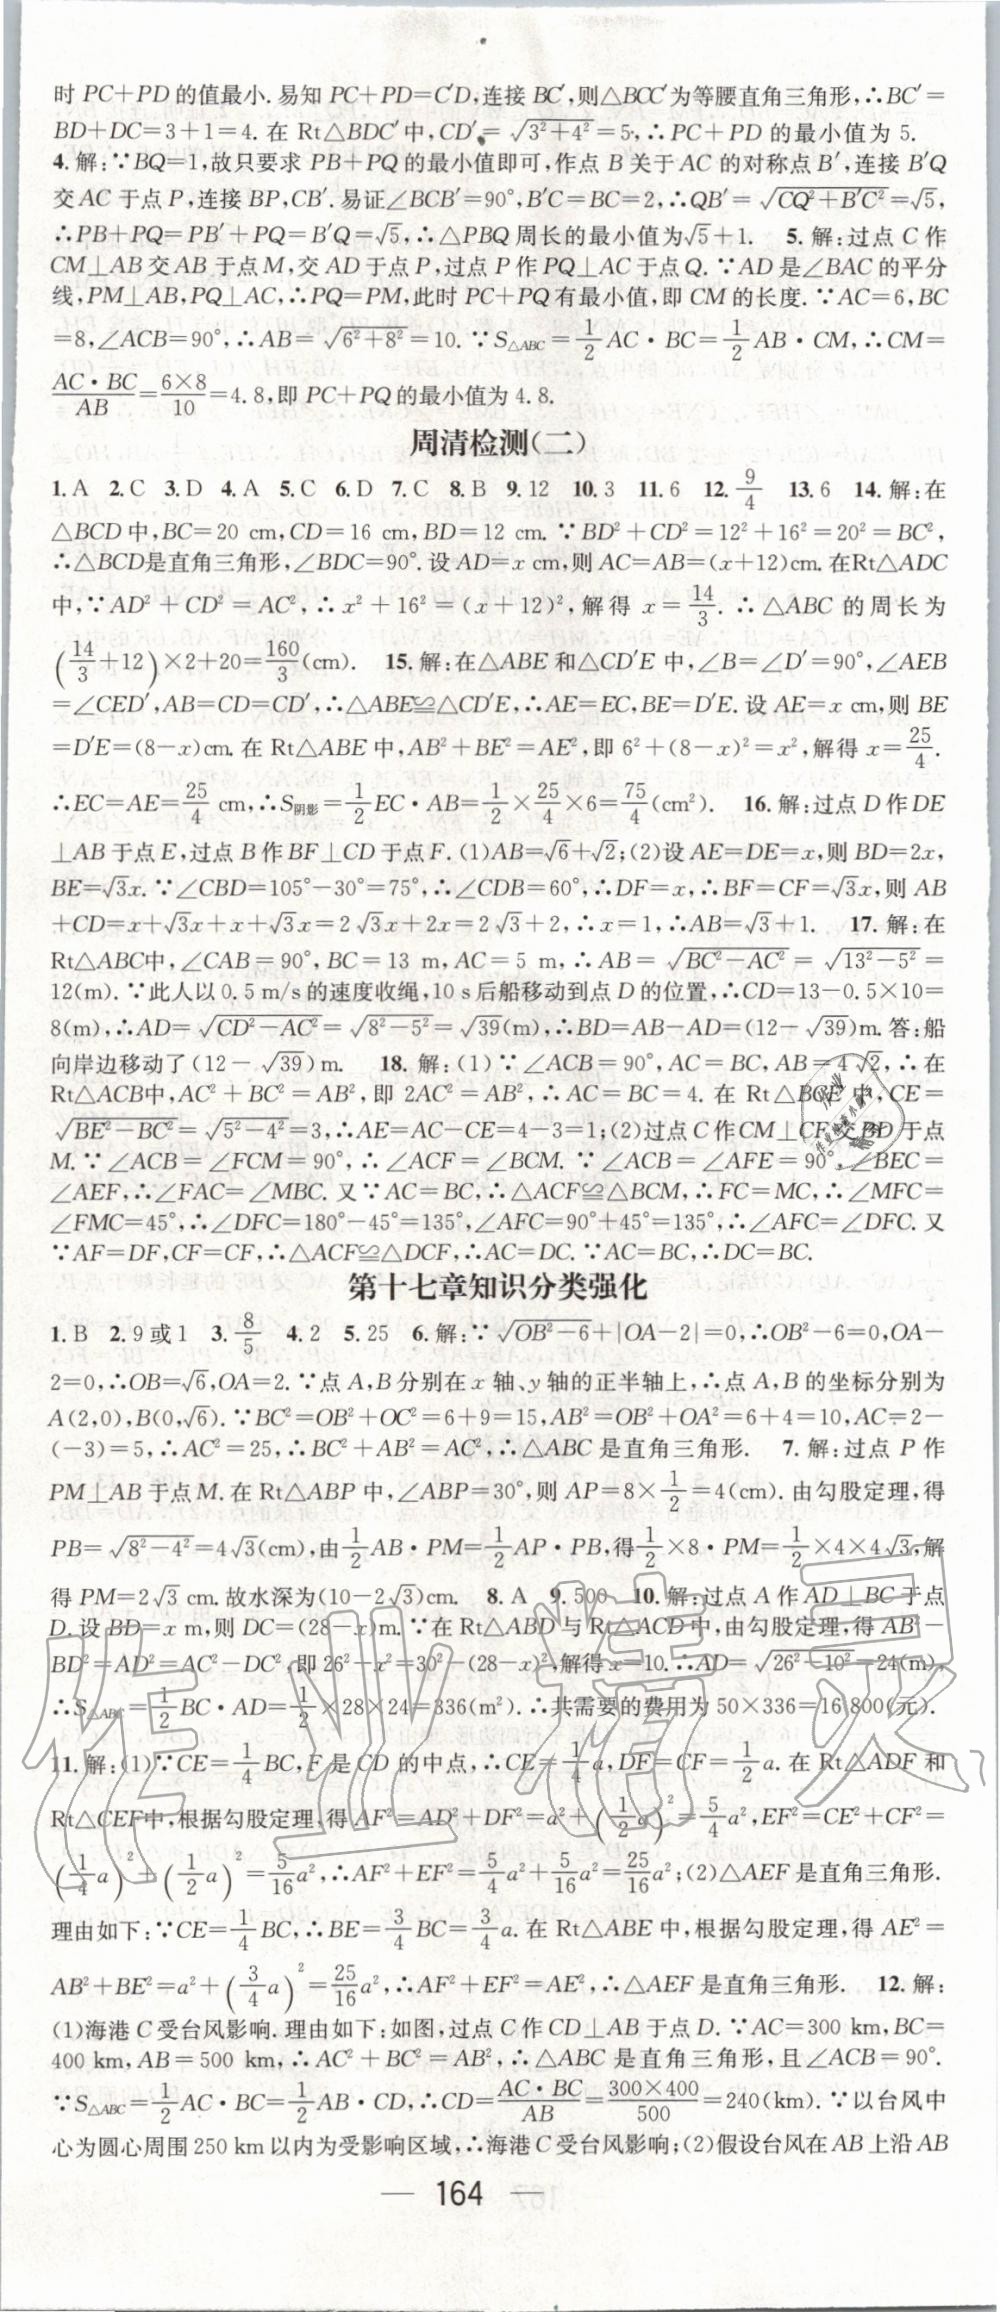 时 PC+PD 的值最小.易知 PC+PD=C′D,连接 BC′,则△BCC′为等腰直角三角形,∴BC′=
BD+DC=3+1=4. 在 Rt△BDC′中,CD′=√(3²+4²)=5,∴PC+PD 的最小值为 5.
4.解:∵BQ=1,故只要求 PB+PQ 的最小值即可,作点 B 关于 AC 的对称点 B′,连接 B′Q
交 AC 于点 P,连接 BP,CB′.易证∠BCB′=90°,B′C=BC=2,∴QB′=√(CQ²+B′C²)=√5,
∴PB+PQ=PB′+PQ=B′Q=√5,∴△PBQ 周长的最小值为√5+1. 5.解:过点 C 作
CM⊥AB 交 AB 于点 M,交 AD 于点 P,过点 P 作 PQ⊥AC 于点 Q.∵AD 是∠BAC 的平分
线,PM⊥AB,PQ⊥AC,∴PQ=PM,此时 PC+PQ 有最小值,即 CM 的长度.∵AC=6,BC
=8,∠ACB=90°,∴AB=√(6²+8²)=10.∵S△ABC=1/2 AC·BC=1/2 AB·CM,∴CM=
AC·BC/AB=6×8/10=4.8,即 PC+PQ 的最小值为 4.8.
周清检测(二)
1.A 2.C 3.D 4.A 5.C 6.D 7.C 8.B 9.12 10.3 11.6 12.9/4 13.6 14.解:在
△BCD 中,BC=20 cm,CD=16 cm,BD=12 cm.∵BD²+CD²=12²+16²=20²=BC²,
∴△BCD是直角三角形,∠BDC=90°.设 AD=x cm,则 AC=AB=(x+12)cm.在Rt△ADC
中,∵AD²+CD²=AC²,∴x²+16²=(x+12)²,解得 x=14/3.∴△ABC 的周长为
(14/3+12)×2+20=160/3(cm). 15.解:在△ABE 和△CD′E 中,∠B=∠D′=90°,∠AEB
=∠CED′,AB=CD=CD′,∴△ABE≌△CD′E,∴AE=EC,BE=D′E.设 AE=x cm,则 BE
=D′E=(8-x)cm.在 Rt△ABE 中,AB²+BE²=AE²,即 6²+(8-x)²=x²,解得 x=25/4.
∴EC=AE=25/4 cm,∴S阴影=1/2 EC·AB=1/2×25/4×6=75/4(cm²). 16.解:过点 D 作 DE
⊥AB 于点 E,过点 B 作 BF⊥CD 于点 F.(1)AB=√6+√2;(2)设 AE=DE=x,则 BD=2x,
BE=√3x.∵∠CBD=105°-30°=75°,∴∠CDB=60°,∴DF=x,∴BF=CF=√3x,则 AB
+CD=x+√3x+x+√3x=2√3x+2x=2√3+2,∴x=1,∴AB=√3+1. 17.解:在
Rt△ABC中,∠CAB=90°,BC=13 m,AC=5 m,∴AB=√(BC²-AC²)=√(13²-5²)=
12(m).∵此人以 0.5 m/s 的速度收绳,10 s 后船移动到点 D 的位置,∴CD=13-0.5×10=
8(m),∴AD=√(CD²-AC²)=√(8²-5²)=√39(m),∴BD=AB-AD=(12-√39)m.答:船
向岸边移动了(12-√39)m. 18.解:(1)∵∠ACB=90°,AC=BC,AB=4√2,∴在
Rt△ACB中,AC²+BC²=AB²,即 2AC²=AB²,∴AC=BC=4.在 Rt△BCE 中,CE=
√(BE²-BC²)=√(5²-4²)=3,∴AE=AC-CE=4-3=1;(2)过点 C 作 CM⊥CF 交 BD 于点
M.∵∠ACB=∠FCM=90°,∴∠ACF=∠BCM.∵∠ACB=∠AFE=90°,∠BEC=
∠AEF,∴∠FAC=∠MBC.又∵AC=BC,∴△ACF≌△BCM,∴FC=MC,∴∠MFC=
∠FMC=45°,∴∠DFC=180°-45°=135°,∠AFC=90°+45°=135°,∴∠AFC=∠DFC.又
∵AF=DF,CF=CF,∴△ACF≌△DCF,∴AC=DC.∵AC=BC,∴DC=BC.
第十七章知识分类强化
1.B 2.9或1 3.8/5 4.2 5.25 6.解:∵√(OB²-6)+|OA-2|=0,∴OB²-6=0,OA-
2=0,∴OB=√6,OA=2.∵点 A,B 分别在 x 轴、y 轴的正半轴上,∴点 A,B 的坐标分别为
A(2,0),B(0,√6).∵BC²=OB²+OC²=6+9=15,AB²=OB²+OA²=6+4=10,AC=2-
(-3)=5,∴AC²=25,∴BC²+AB²=AC²,∴△ABC 是直角三角形. 7.解:过点 P 作
PM⊥AB 于点 M.在 Rt△ABP 中,∠ABP=30°,则 AP=8×1/2=4(cm).由勾股定理,得
PB=√(8²-4²)=4√3(cm),由1/2 AB·PM=1/2 AP·PB,得1/2×8·PM=1/2×4×4√3,解
得 PM=2√3 cm.故水深为(10-2√3)cm. 8.A 9.500 10.解:过点 A 作 AD⊥BC 于点
D.设 BD=x m,则 DC=(28-x)m.∵在 Rt△ABD 与 Rt△ACD 中,由勾股定理,得 AB²-
BD²=AD²=AC²-DC²,即 26²-x²=30²-(28-x)²,解得 x=10.∴AD=√(26²-10²)=24(m),
∴S△ABC=1/2 BC·AD=1/2×28×24=336(m²).∴共需要的费用为 50×336=16 800(元).
11.解:(1)∵CE=1/4 BC,F 是 CD 的中点,∴CE=1/4 a,DF=CF=1/2 a.在 Rt△ADF 和
Rt△CEF中,根据勾股定理,得 AF²=AD²+DF²=a²+(1/2 a)²=5/4 a²,EF²=CE²+CF²=
(1/4 a)²+(1/2 a)²=5/16 a²,∴AF²+EF²=5/4 a²+5/16 a²=25/16 a²;(2)△AEF 是直角三角形.
理由如下:∵CE=1/4 BC,∴BE=3/4 BC=3/4 a.在 Rt△ABE 中,根据勾股定理,得 AE²=
AB²+BE²=a²+(3/4 a)²=25/16 a²,∴AF²+EF²=AE²,∴△AEF 是直角三角形. 12.解:
(1)海港 C 受台风影响.理由如下:如图,过点 C 作 CD⊥AB 于点 D.∵AC=300 km,BC=
400 km,AB=500 km,∴AC²+BC²=AB²,∴△ABC 是直角三角形,且∠ACB=90°.
∵S△ABC=1/2 AC·BC=1/2 AB·CD,∴CD=AC·BC/AB=300×400/500=240(km).∵以台风中
心为圆心周围 250 km 以内为受影响区域,∴海港 C 受台风影响;(2)假设台风在 AB 上沿 AB
— 164 —
作业精灵